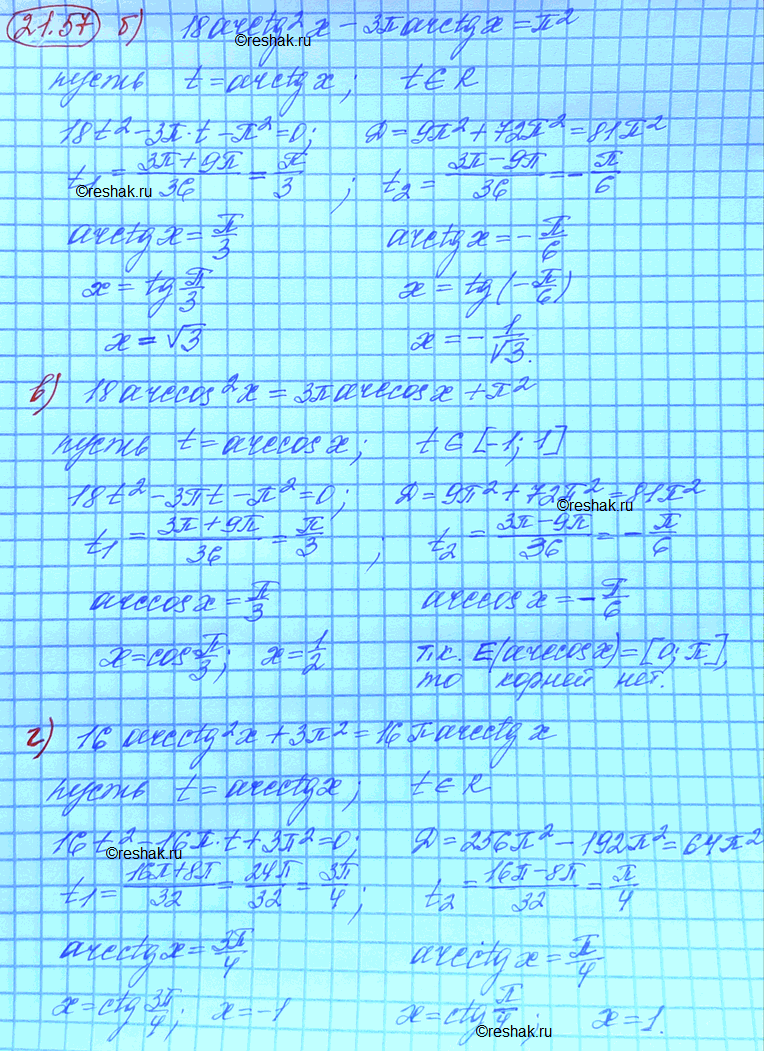 21.57 б) 18arctg²x − 3π arctgx = π²
©reshak.ru
пусть t = arctgx; t ∈ R
18t² − 3π·t − π² = 0; D = 9π² + 72π² = 81π²
t₁ = (3π + 9π)/36 = π/3; t₂ = (3π − 9π)/36 = −π/6
©reshak.ru
arctgx = π/3 arctgx = −π/6
x = tg π/3 x = tg(−π/6)
x = √3 x = −1/√3.
в) 18arccos²x = 3π arccosx + π²
пусть t = arccosx; t ∈ [−1; 1]
18t² − 3πt − π² = 0; D = 9π² + 72π² = 81π²
©reshak.ru
t₁ = (3π + 9π)/36 = π/3; t₂ = (3π − 9π)/36 = −π/6
arccosx = π/3 arccosx = −π/6
x = cos π/3; x = 1/2 т.к. E(arccosx) = [0; π],
то корней нет.
г) 16 arcctg²x + 3π² = 16π arcctgx
пусть t = arcctgx; t ∈ R
©reshak.ru
16t² − 16π·t + 3π² = 0; D = 256π² − 192π² = 64π²
©reshak.ru
t₁ = (16π + 8π)/32 = 24π/32 = 3π/4; t₂ = (16π − 8π)/32 = π/4
arcctgx = 3π/4 arcctgx = π/4
x = ctg 3π/4; x = −1 x = ctg π/4; x = 1.
©reshak.ru